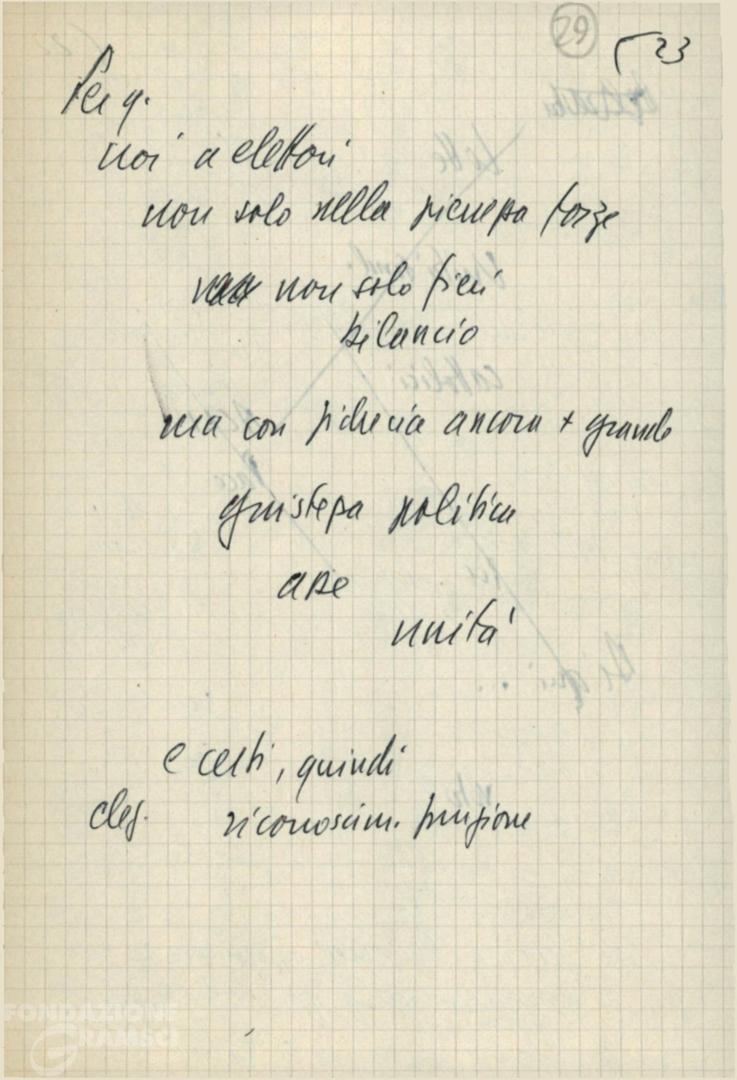 29
23
Per q.
noi a elettori
non solo nella pienezza forze
non solo fieri
bilancio
ma con fiducia ancora + grande
giustezza politica
unità
e certi, quindi
riconoscim. funzione
FONDAZIONE
GRAMSCI